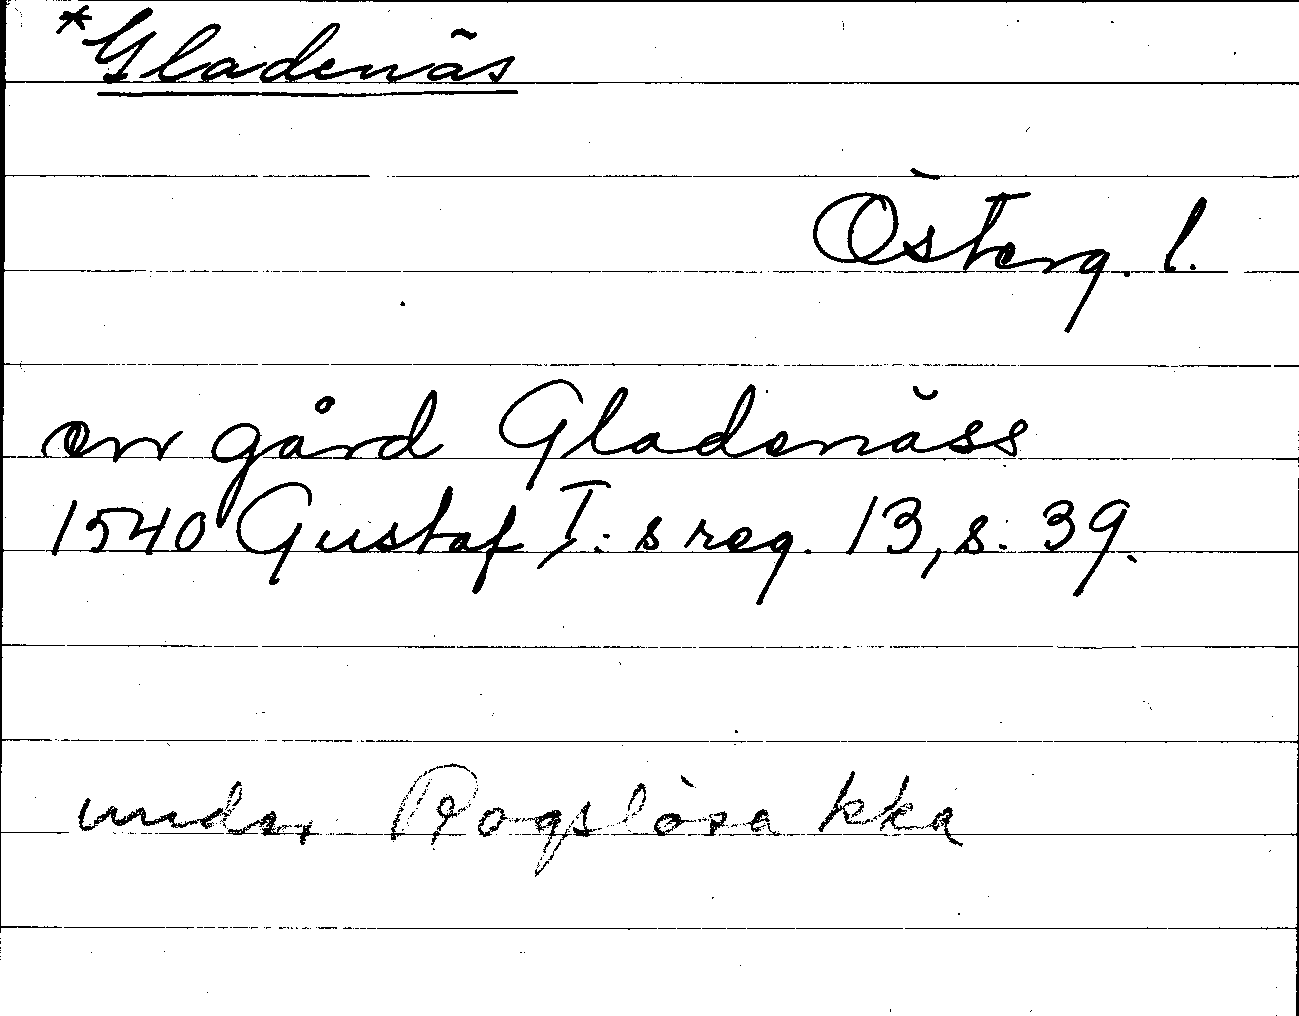 *Gladenäs
Österg. l.
en gård Gladenäss
1540 Gustaf I:s reg. 13, s. 39.
under Rogslösa kka